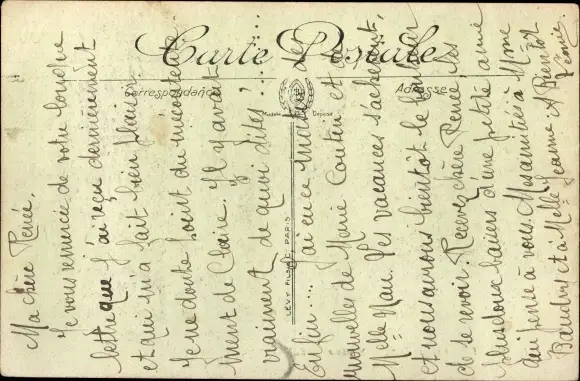 Carte Postale
Correspondance
Adresse
Modèle Déposé
LEVY FILS & Cie, PARIS
Ma chère Renée,
Je vous remercie de votre longue
lettre que j'ai reçue dernièrement
et qui m'a fait bien plaisir
Je ne doute point du mécontente
ment de Claire. Il y avait
vraiment de quoi dites, .....
Enfin.... j'ai eu ce matin des
nouvelles de Marie Coutin et de
Melle Nau. Les vacances s'achèvent,
et nous aurons bientôt le bonheur
de se revoir. Recevez chère Renée, les
plus doux baisers d'une petite amie
qui pense à vous. Mes amitiés à Mme
et à Melle Jeanne A Bientôt